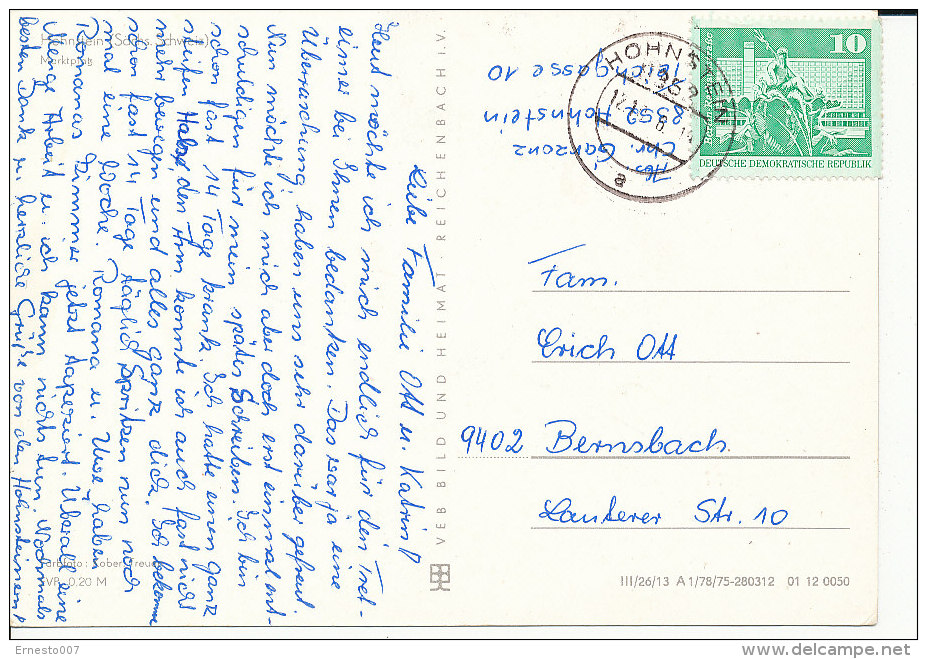 Hohnstein (Sächs. Schweiz)
Marktplatz
Liebe Familie Ott u. Katrin!
Heut möchte ich mich endlich für den Tref-
eimer bei Ihnen bedanken. Das war ja eine
Überraschung, haben uns sehr darüber gefreut.
Nun möchte ich mich aber doch erst einmal ent-
schuldigen für mein spätes Schreiben. Ich bin
schon fast 14 Tage krank. Ich hatte einen ganz
steifen Hals, den Arm konnte ich auch fast nicht
mehr bewegen und alles ganz dick. Ich bekomme
schon fast 14 Tage täglich Spritzen nun noch
mal eine Woche. Romana u. Uwe haben
Romanas Zimmer jetzt tapeziert. Überall eine
Menge Arbeit u. ich kann nichts tun. Nochmals
besten Dank u. herzliche Grüße von den Hohnsteinern!
Farbfoto: Kober, Freu
EVP 0,20 M
VEB BILD UND HEIMAT · REICHENBACH I. V.
Abs.
Chr. Garzonz
8352 Hohnstein
gasse 10
HOHNSTEIN
8352
a
10
DEUTSCHE DEMOKRATISCHE REPUBLIK
Fam.
Erich Ott
9402 Bernsbach
Lauterer Str. 10
III/26/13 A 1/78/75-280312 01 12 0050
Ernesto007
delcampe.net